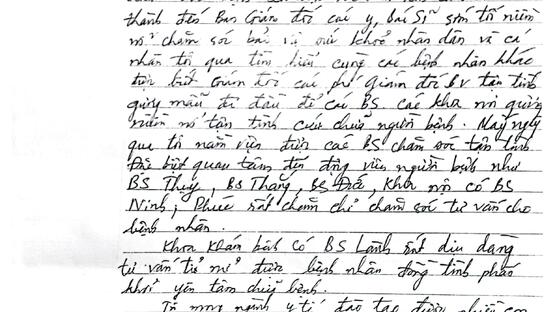 thành đến Ban Giám đốc các y, bác sĩ sớm tối niềm
nở chăm sóc bảo vệ sức khoẻ nhân dân và cá
nhân tôi qua tìm hiểu cùng các bệnh nhân khác
biết Giám đốc các phó Giám đốc BV tận tình
gương mẫu đi đầu để các BS các khoa nơi
niềm nở tận tình cứu chữa người bệnh. Mấy ngày
qua tôi nằm viện được các BS chăm sóc tận tình
Đặc biệt quan tâm đến động viên người bệnh như
BS Thuý, BS Thắng, BS Đắc, Khoa nội có BS
Ninh, Phúc rất chăm chỉ chăm sóc tư vấn cho
bệnh nhân.
Khoa khám bệnh có BS Lành rất dịu dàng
tư vấn tỉ mỉ được bệnh nhân đồng tình phấn
khởi yên tâm chữa bệnh.
Tôi mong ngành y tế đào tạo được nhiều con